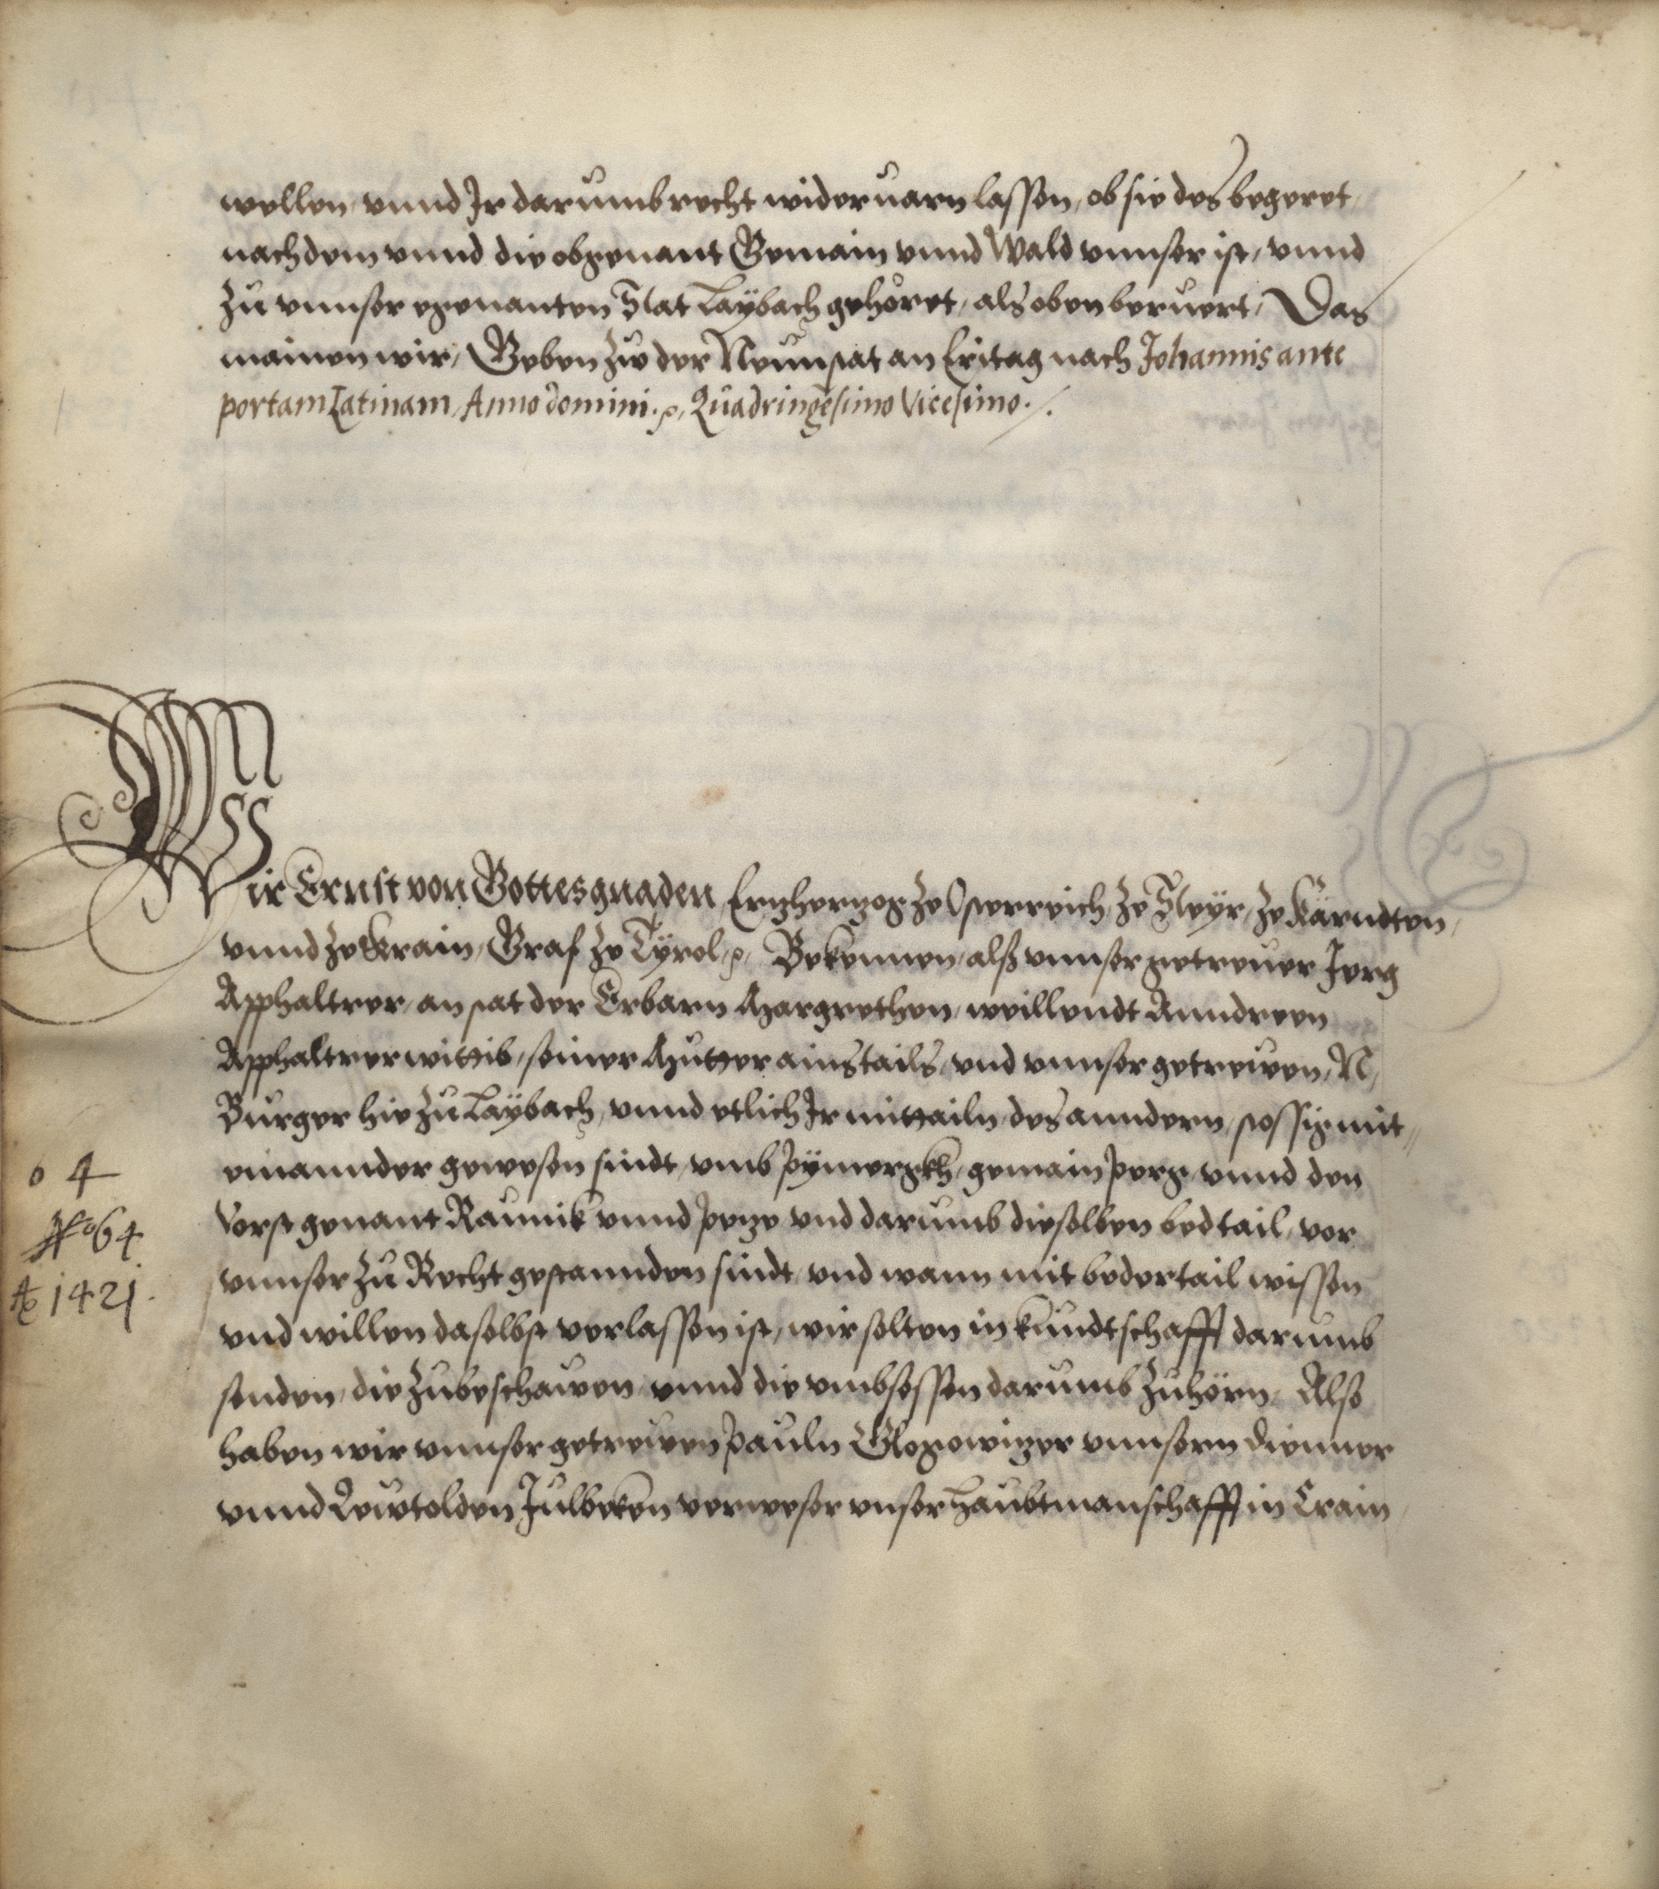 wellen, vnnd Jr darumb recht wideruarn lassen, ob sie des begeret,
nachdem vnnd die obgenant Gemain vnnd Wald vnnser ist, vnnd
zu vnnser egenanten Stat Laÿbach gehöret, als oben beruert, Das
mainen wir, Geben zw der Neunstat an Eritag nach Johannis ante
portam Latinam, Anno domini. p. Quadringesimo Vicesimo.
Wir Ernst von Gottes gnaden Ertzhertzog ze Osterreich, ze Steÿr, ze Kärndten,
vnnd ze Krain, Graf ze Tÿrol, p. Bekennen, alß vnnser getreuer Jerg
Apphaltrer, an stat der Erbarn Margrethen, weillendt Anndreen
Apphaltrer wittib, seiner Mutter ains tails, vnd vnnser getrewen, N,
Burger hie zu Laÿbach, vnnd etlich Jr mittailn, des anndern, stossig mit
einannder gewesen sindt, vmb gemain perg, vnnd den
Vorst genant Raunik vnnd vnd darumb dieselben bedtail, vor
vnnser zu Recht gestannden sindt, vnd wann mit bedertail wissen
vnd willen daselbst verlassen ist, wir solten in kundtschafft darumb
senden, die zubeschawen, vnnd die vmbsessen darumb zuhörn, Also
haben wir vnnser getrewen Pauln Glogowitzer vnnsern dienner
vnnd Lewtolden Julbeken verweser vnser Haubtmanschafft in Crain
o 4
No 64.
Ao 1421.